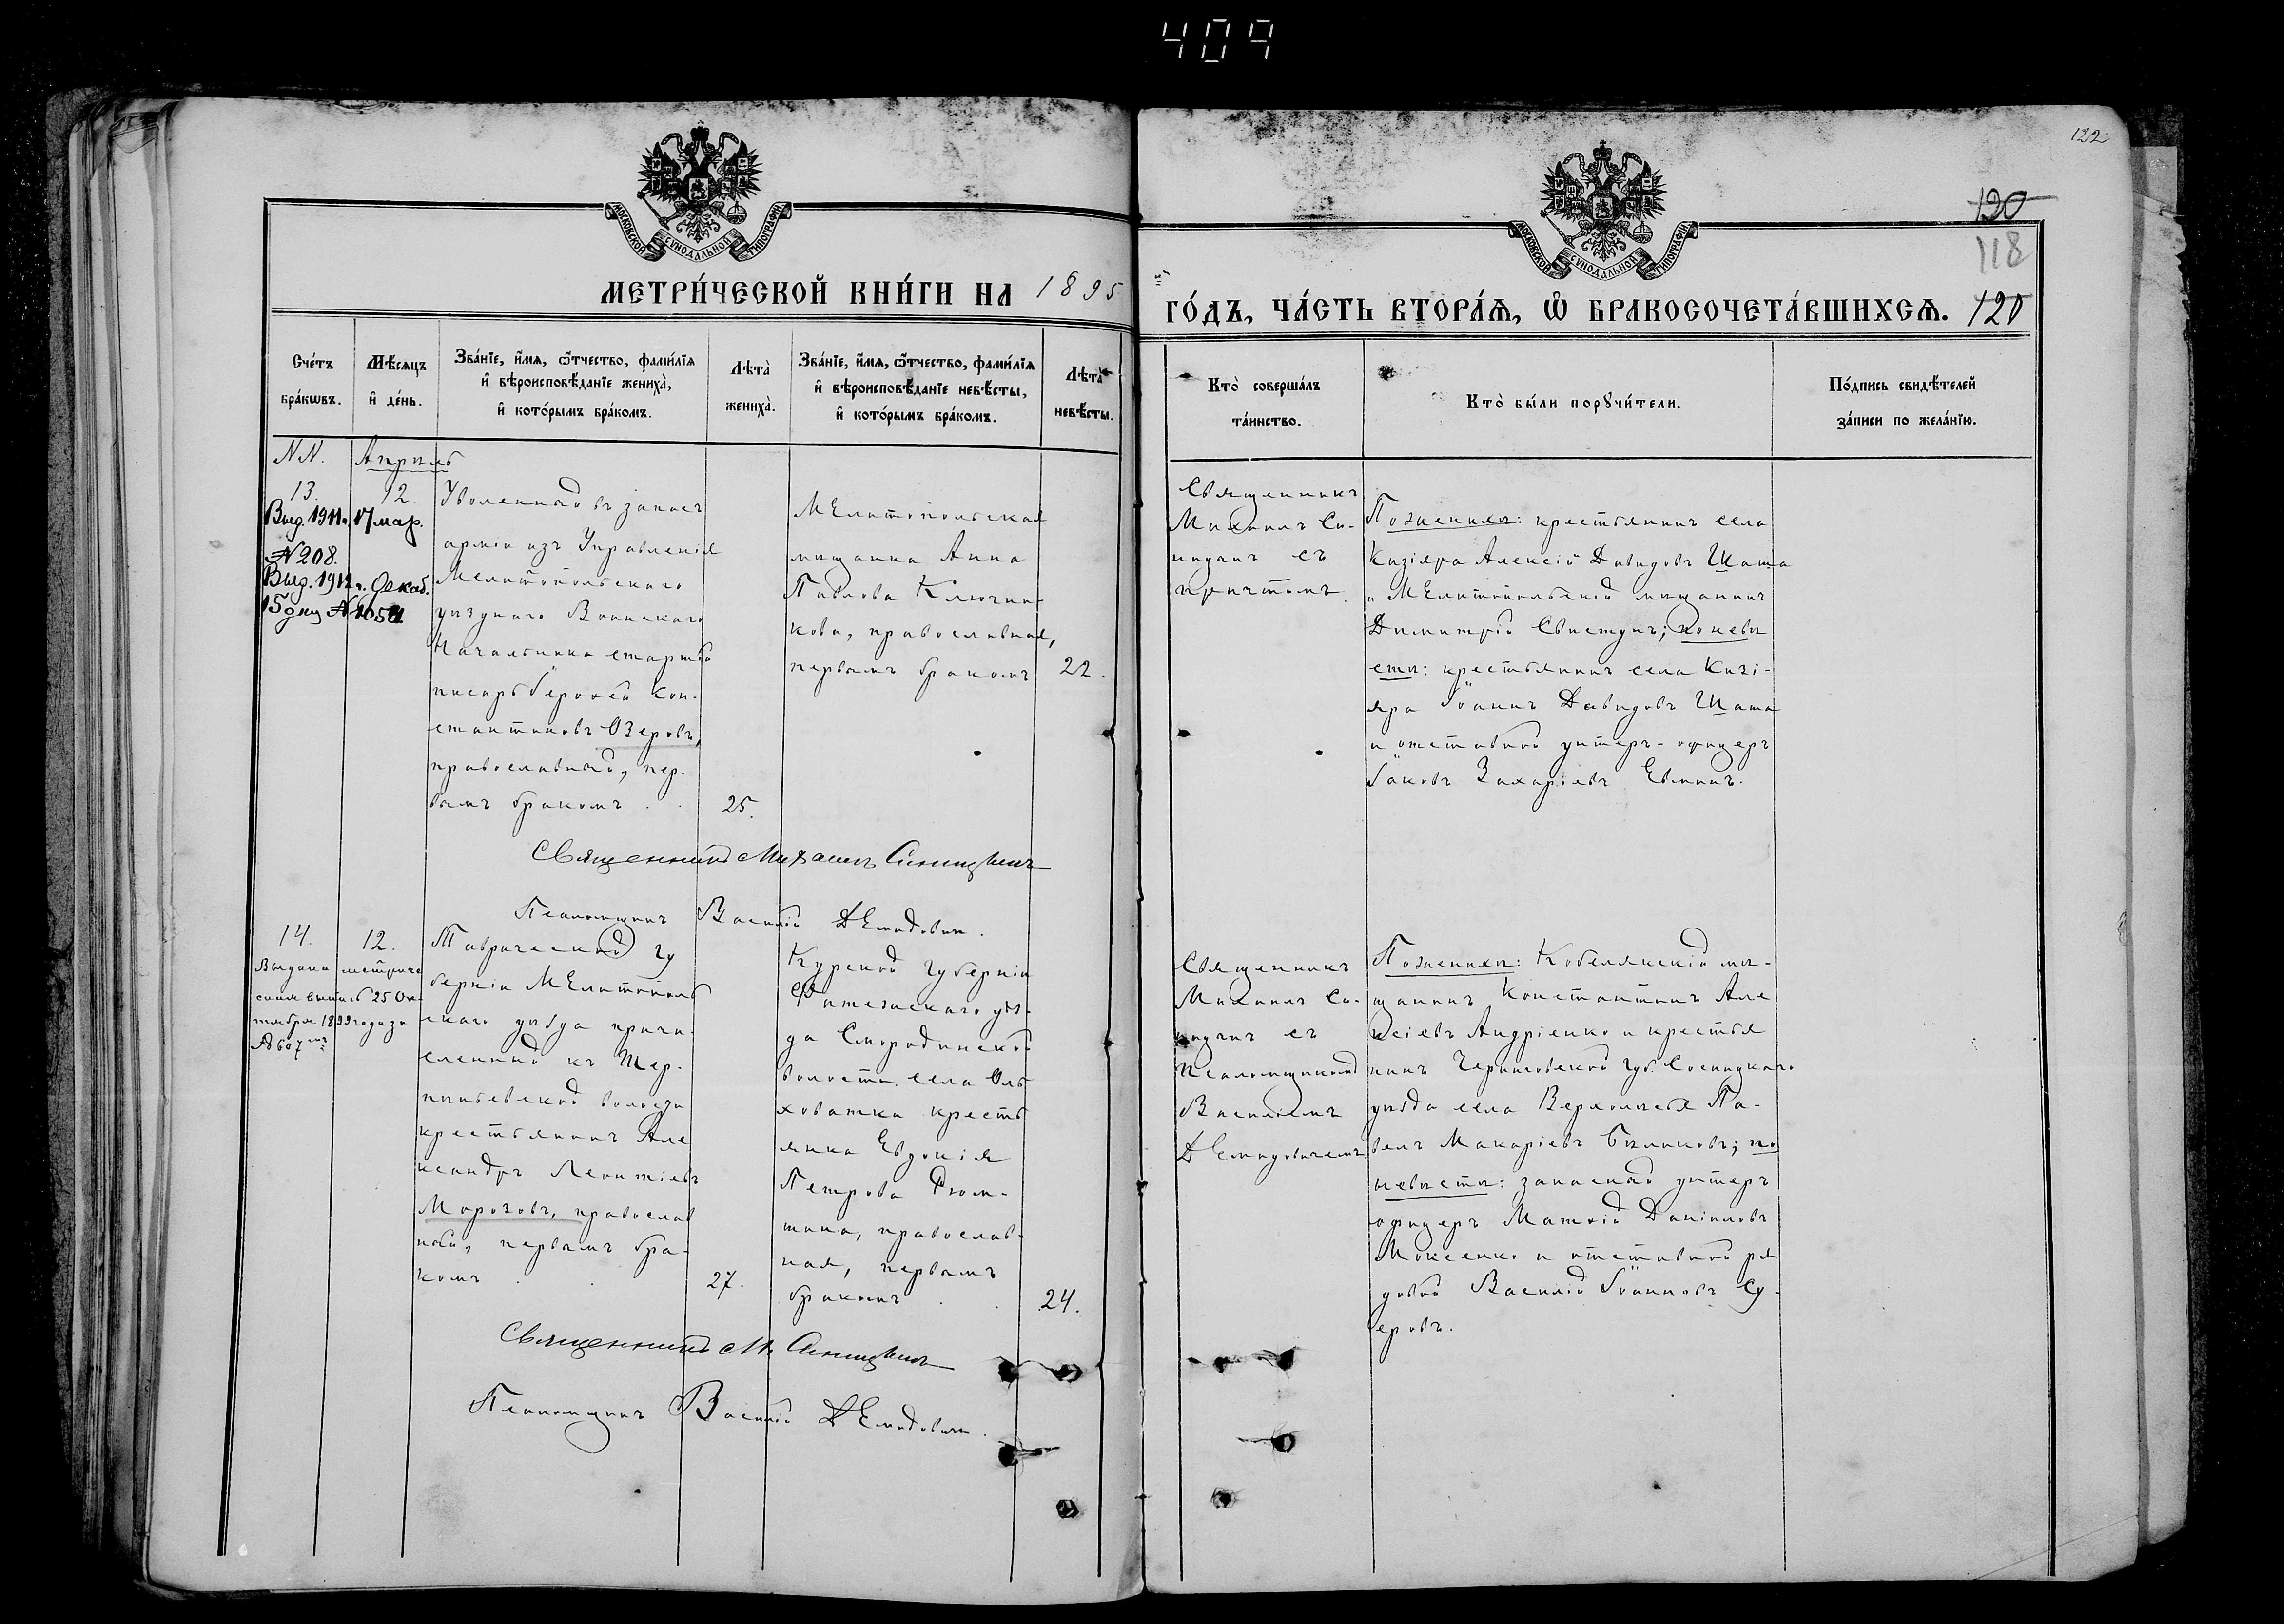 409
122
120
118
120
МОСКОВСКОЙ СѴНОДАЛЬНОЙ ТИПОГРАФІИ
МОСКОВСКОЙ СѴНОДАЛЬНОЙ ТИПОГРАФІИ
МЕТРИ́ЧЕСКОЙ КНИ́ГИ НА 1895
ГО́ДЪ, ЧА́СТЬ ВТОРА́Я, Ѽ БРАКОСОЧЕТА́ВШИХСЯ.
Сче́тъ бра́кѡвъ.
Мѣ́сяцъ и҆ де́нь.
Зва́нїе, и҆́мя, ѻ҆́тчество, фами́лїя
и҆ вѣроисповѣ́данїе жениха̀,
и҆ кото́рымъ бра́комъ.
Лѣта̀ жениха̀.
Зва́нїе, и҆́мя, ѻ҆́тчество, фами́лїя
и҆ вѣроисповѣ́данїе невѣ́сты,
и҆ кото́рымъ бра́комъ.
Лѣта̀ невѣ́сты.
Кто̀ соверша́лъ та́инство.
Кто̀ бы́ли порꙋчи́тели.
По́дпись свидѣ́телей
за́писи по жела́нїю.
NN.
Апрѣль
13.
12.
Выд. 1911 г. 17 мар.
№ 208.
Выд. 1912 г. Декаб.
15 дня №
Уволенный въ запасъ
арміи изъ Управленія
Мелитопольскаго
уѣзднаго Воинскаго
Начальника старшій
писарь Сергѣй Кон-
стантиновъ Озеровъ,
православный, пер-
вымъ бракомъ . .
25.
Мелитопольская
мѣщанка Анна
Павлова Ключни-
кова, православная,
первымъ бракомъ
22.
Священникъ
Михаилъ Си-
ницинъ съ
причтомъ.
По женихѣ: крестьянинъ села
Кизіяра Алексій Давидовъ Шата
и Мелитопольскій мѣщанинъ
Димитрій Свистунъ; по невѣ
стѣ: крестьянинъ села Кизі-
яра Іоаннъ Давидовъ Шата
и отставной унтеръ-офицеръ
Іаковъ Захаріевъ Евминъ.
Священникъ Михаилъ Синицынъ
Псаломщикъ Василій Демидовичъ.
14.
12.
Выдана метриче
ская выпись 25 Ок-
тября 1899 года за
№ 607
Таврической гу
берніи Мелитополь
скаго уѣзда причи-
сленный къ Тер-
пѣньевской волости
крестьянинъ Але
ксандръ Леонтіевъ
Морозовъ, православ
ный, первымъ бра-
комъ . .
27.
Курской губерніи
Фатежскаго уѣз-
да Смородинской
волости села Оль
ховатка кресть
янка Евдокія
Петрова
православ-
ная, первымъ
бракомъ . .
24.
Священникъ
Михаилъ Си-
ницинъ съ
псаломщикомъ
Василіемъ
Демидовичемъ
По женихѣ: Кобелякскій мѣ-
щанинъ Константинъ Але
ксіевъ Андріенко и крестья
нинъ Черниговской губ. Сосницкаго
уѣзда села Верхолесья Па-
велъ Макаріевъ Быликовъ; по
невѣстѣ: запасный унтеръ
офицеръ Матѳій Даніиловъ
Моисеенко и отставной ря
довой Василій Іоанновъ Су-
еровъ.
Священникъ М. Синицынъ
Псаломщикъ Василій Демидовичъ.